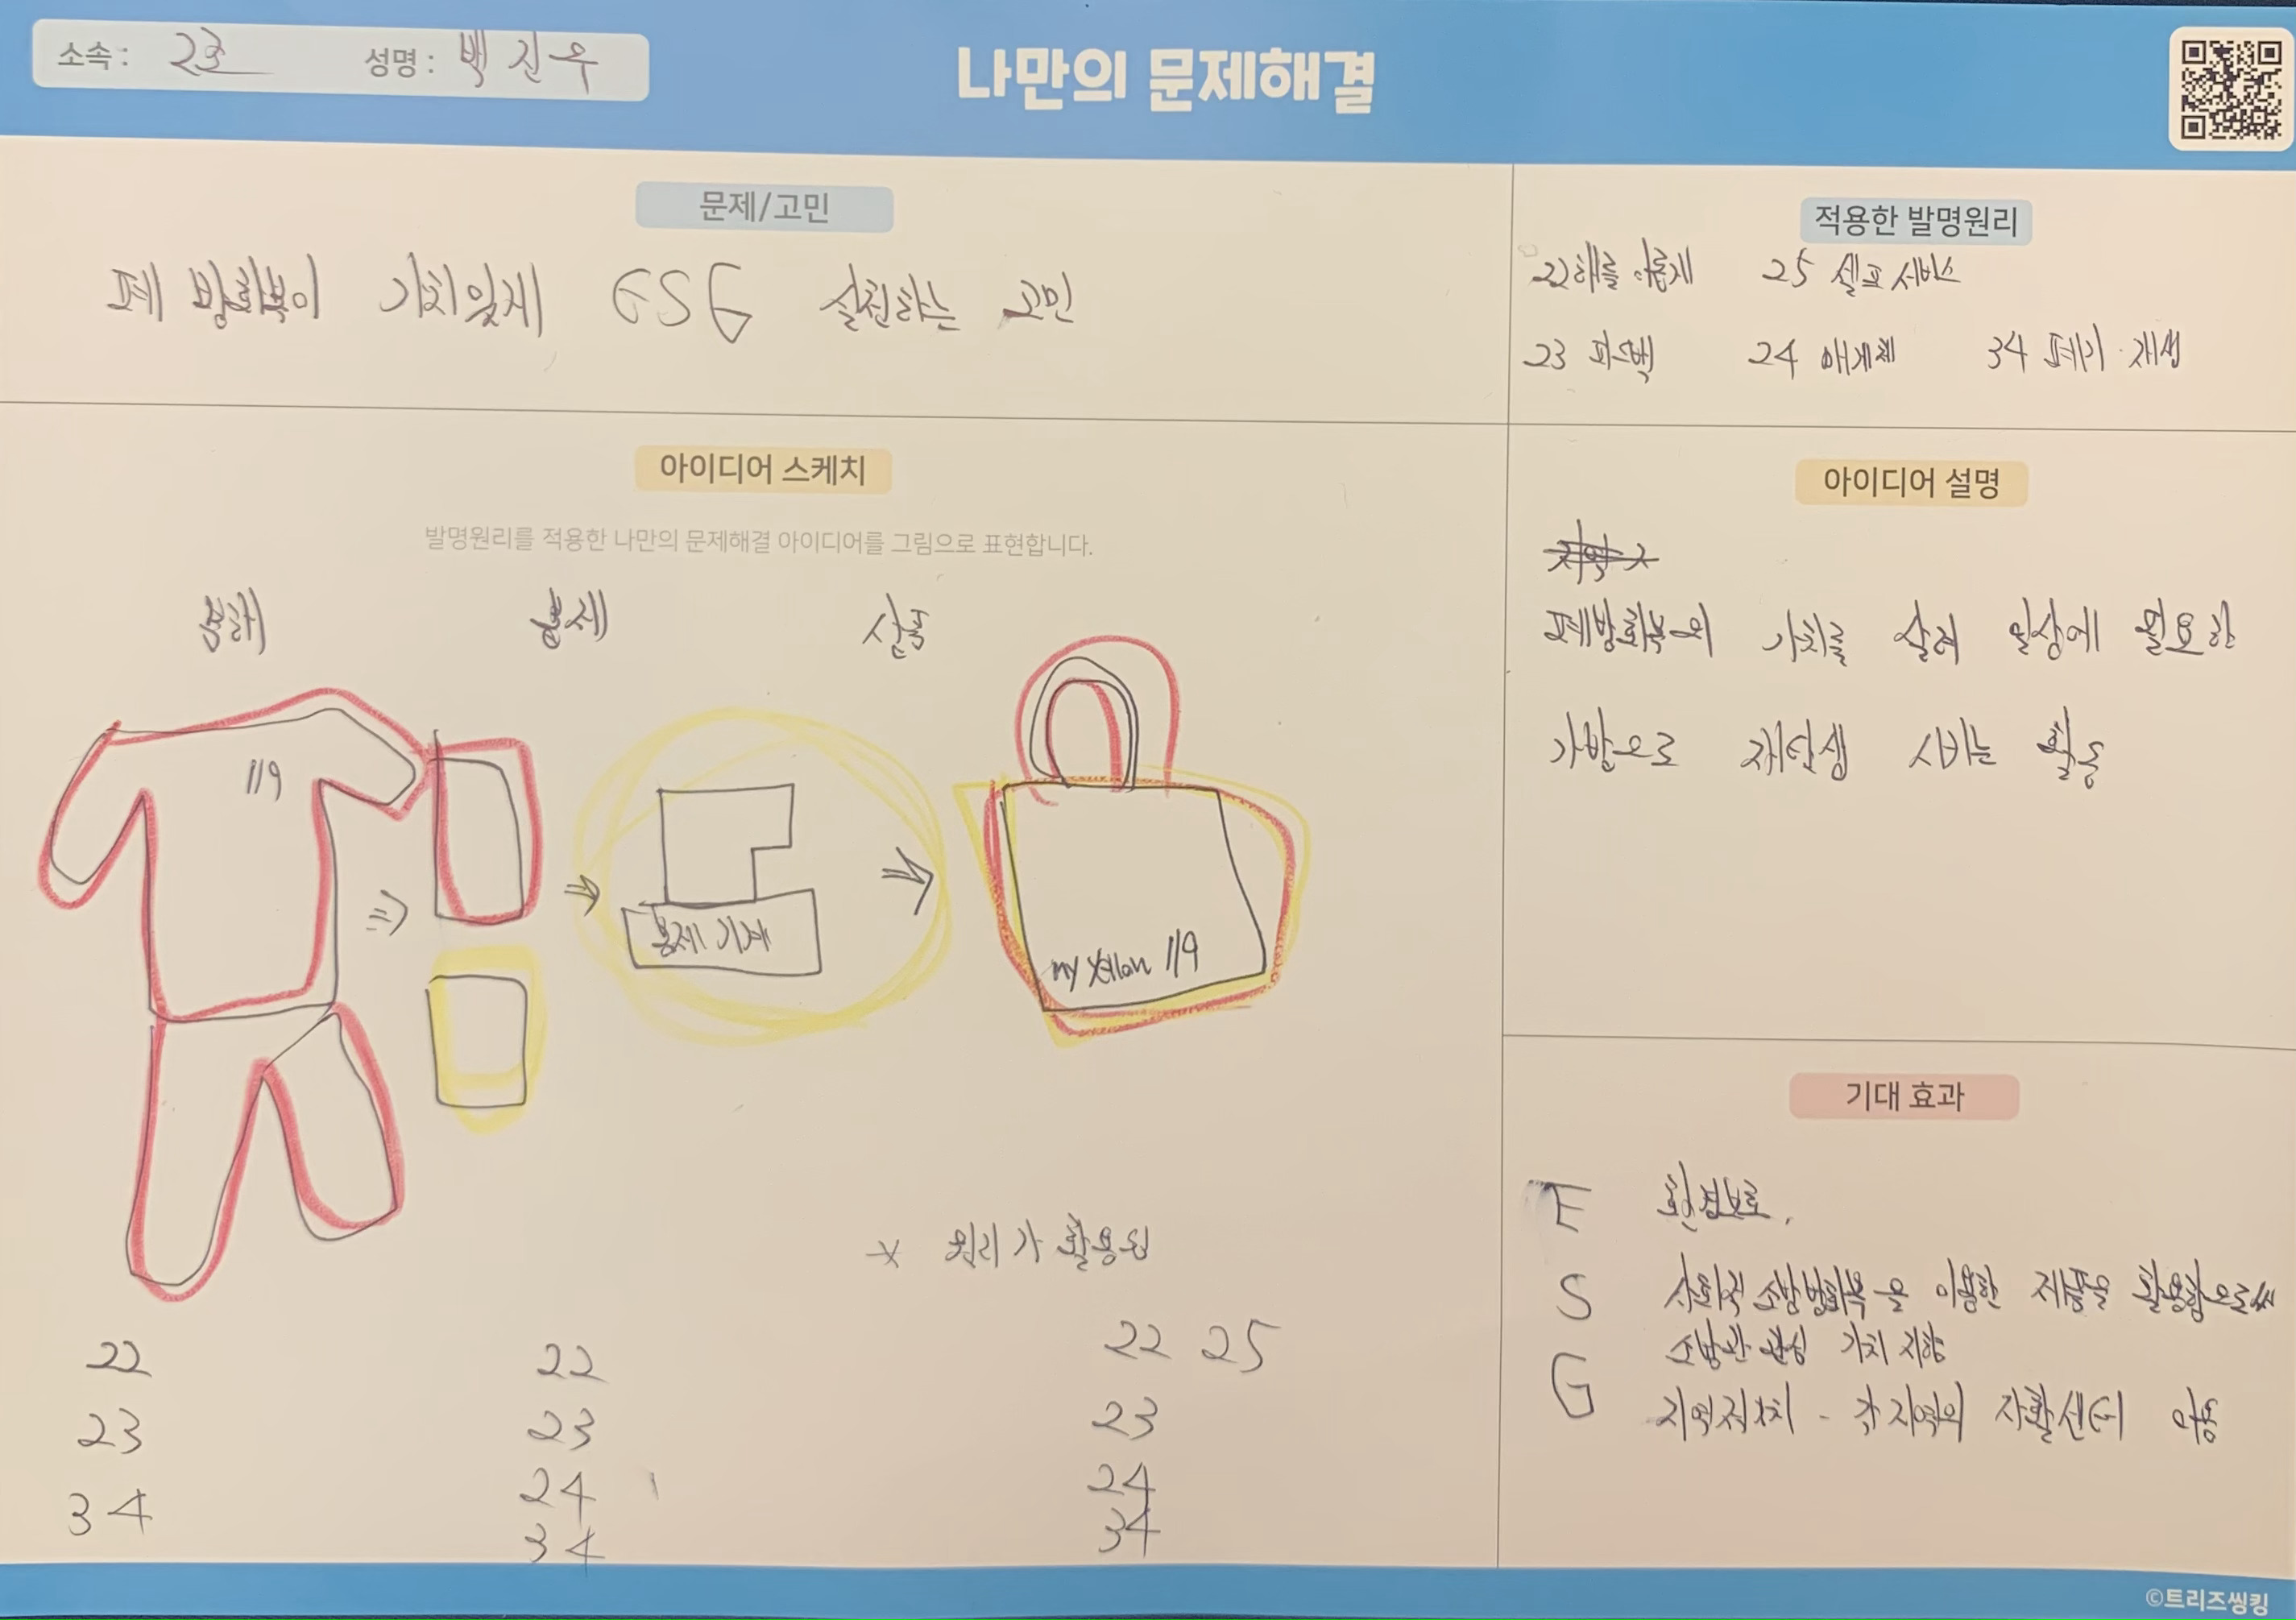 소속 : 2조 성명 : 백진우
나만의 문제해결
문제/고민
폐 방화복이 가치있게 ESG 실천하는 고민
적용한 발명원리
22 해를 이롭게 25 셀프서비스
23 피드백 24 매개체 34 폐기·재생
아이디어 스케치
발명원리를 적용한 나만의 문제해결 아이디어를 그림으로 표현합니다.
분해 봉제 상품
119
봉제 기계
my 119
※ 원리가 활용된
22 22 22 25
23 23 23
34 24 24
34 34
아이디어 설명
폐방화복의 가치를 살려 일상에 필요한
가방으로 재탄생 시키는 활동
기대 효과
E 환경보호,
S 사회적 소방방화복을 이용한 제품을 활용함으로써
소방관 관심 가치 지향
G 각 지역의 자활센터
©트리즈씽킹